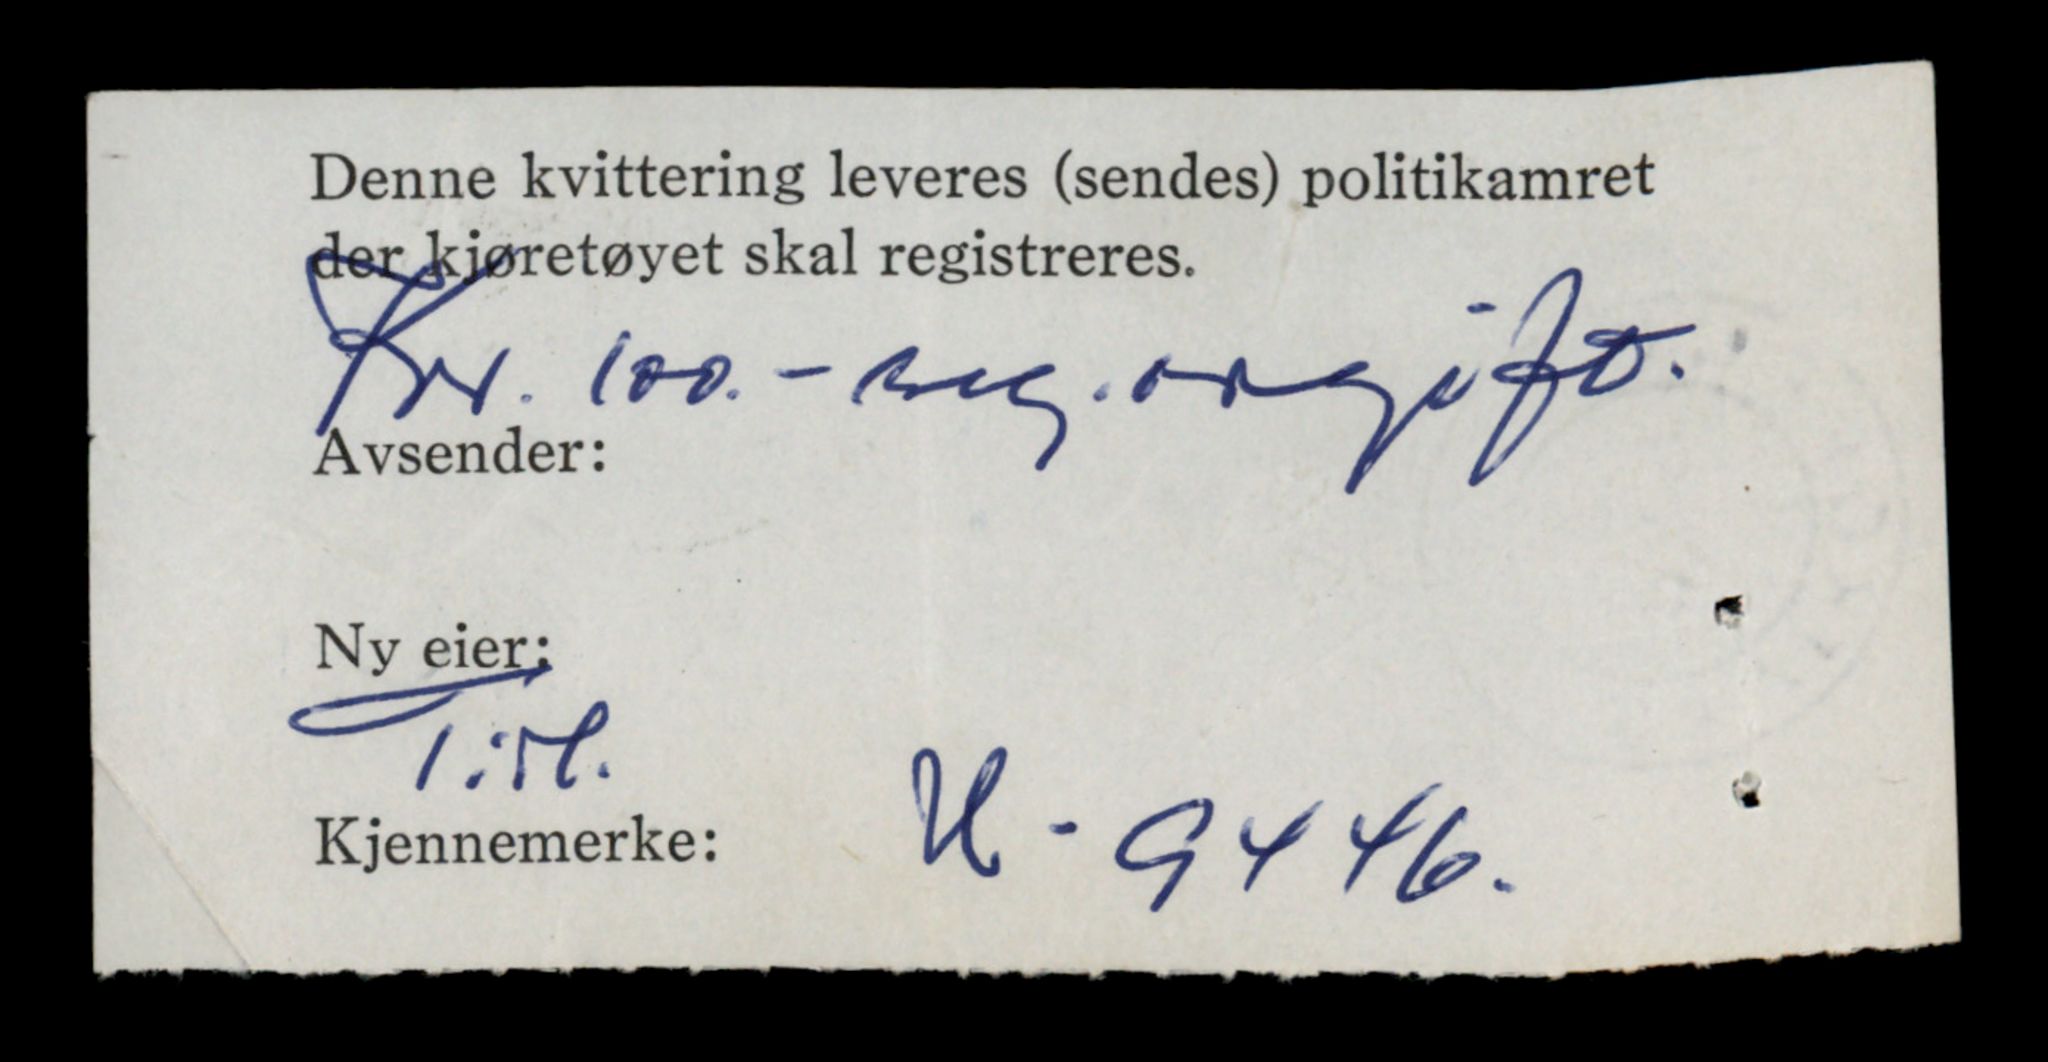 Denne kvittering leveres (sendes) politikamret
der kjøretøyet skal registreres.
Kr. 100.- reg.avgift.
Avsender:
Ny eier:
Kjennemerke: U-9446.